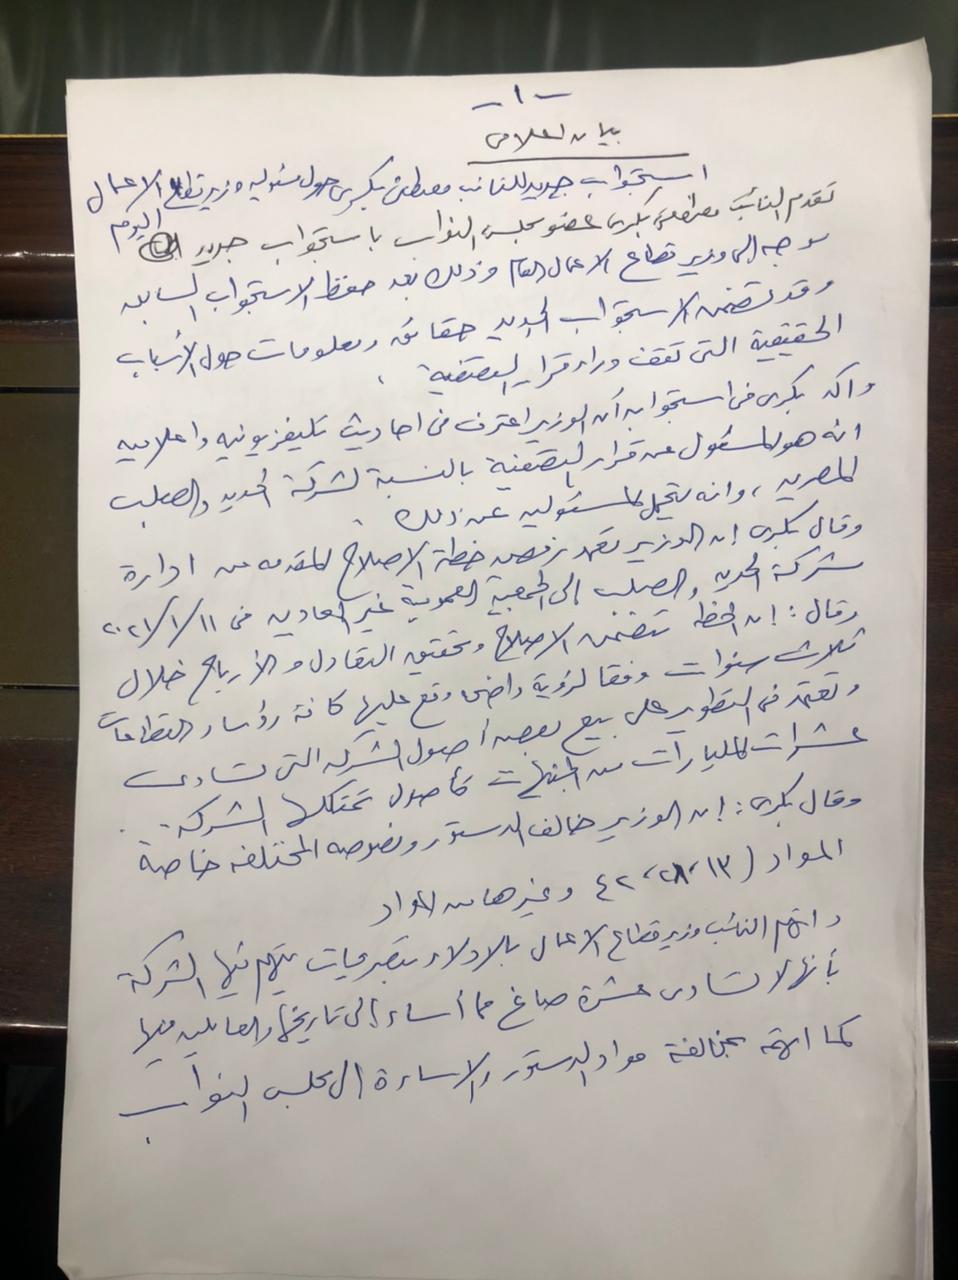 - ١ -
بيان اعلامى
استجواب جديد للنائب مصطفى بكرى حول مسئوليه وزير قطاع الاعمال
تقدم النائب مصطفى بكرى عضو مجلس النواب باستجواب جديد اليوم
موجه الى وزير قطاع الاعمال العام وذلك بعد حفظ الاستجواب السابق
وقد تضمن الاستجواب الجديد حقائق ومعلومات حول الأسباب
الحقيقية التى تقف وراء قرار التصفية .
واكد بكرى فى استجوابه أن الوزير اعترف فى احاديث تليفزيونيه واعلاميه
انه هو المسئول عن قرار التصفية بالنسبة لشركة الحديد والصلب
المصريه ، وانه يتحمل المسئوليه عن ذلك .
وقال بكرى إن الوزير تعمد رفض خطة الاصلاح المقدمه من ادارة
شركة الحديد والصلب إلى الجمعية العمومية غير العاديه فى ٢٠٢١/١/١١
وقال : إن الخطه تتضمن الاصلاح وتحقيق التعادل والأرباح خلال
ثلاث سنوات وفقا لرؤية واضحه وقع عليها كافة رؤساء القطاعات
وتعتمد فى التطوير على بيع بعض أصول الشركه التى تساوى
عشرات المليارات من الجنيهات كأصول تمتلكها الشركه .
وقال بكرى : إن الوزير خالف الدستور ونصوصه المختلفه خاصة
المواد (١٣ ، ٢٨ ، ٤٢ وغيرها من المواد
واتهم النائب وزير قطاع الاعمال بالادلاء بتصريحات يتهم فيها الشركة
بأنها لا تساوى عشرة صاغ مما أساء إلى تاريخها والعاملين فيها
كما اتهمه بمخالفة مواد الدستور والاساءة إلى مجلس النواب